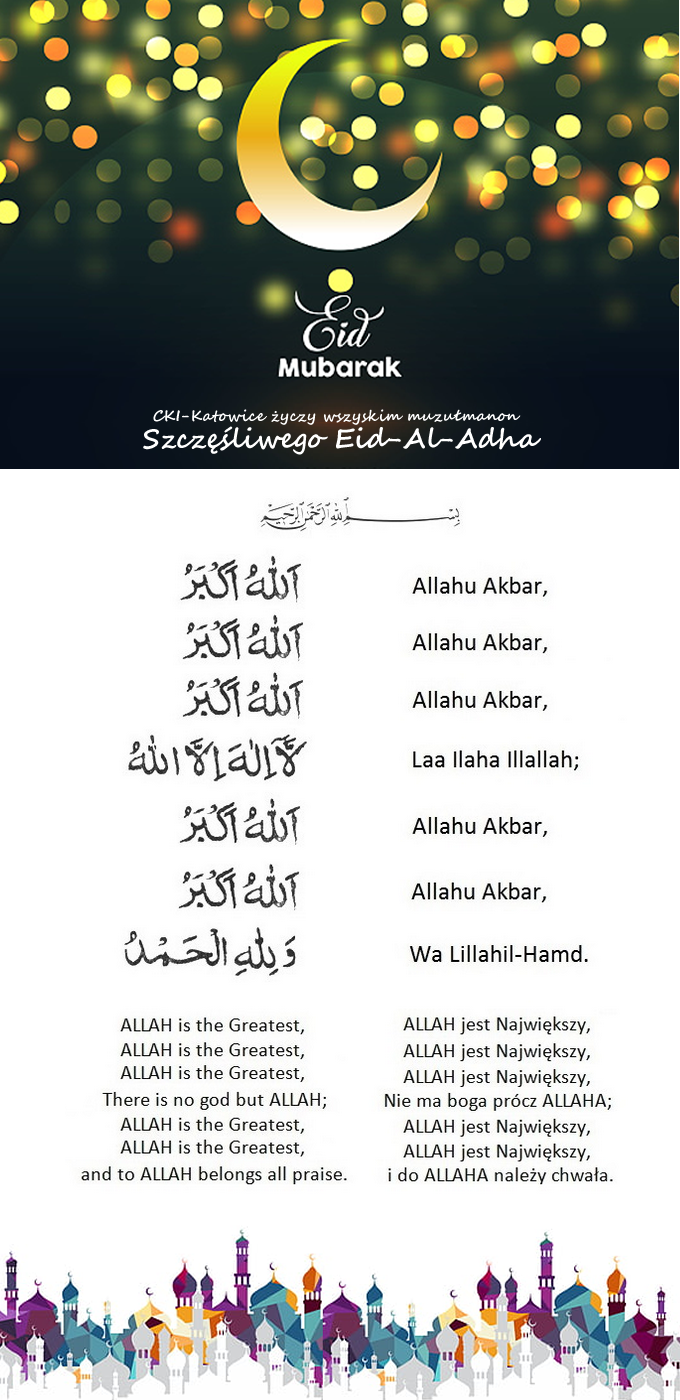 Eid
Mubarak
CKI-Katowice życzy wszyskim muzułmanon
Szczęśliwego Eid-Al-Adha
بِسْمِ ٱللَّهِ ٱلرَّحْمَٰنِ ٱلرَّحِيمِ
اَللّٰهُ اَكْبَرُ Allahu Akbar,
اَللّٰهُ اَكْبَرُ Allahu Akbar,
اَللّٰهُ اَكْبَرُ Allahu Akbar,
لَآ اِلٰهَ اِلَّا اللّٰهُ Laa Ilaha Illallah;
اَللّٰهُ اَكْبَرُ Allahu Akbar,
اَللّٰهُ اَكْبَرُ Allahu Akbar,
وَ لِلّٰهِ الْحَمْدُ Wa Lillahil-Hamd.
ALLAH is the Greatest,
ALLAH is the Greatest,
ALLAH is the Greatest,
There is no god but ALLAH;
ALLAH is the Greatest,
ALLAH is the Greatest,
and to ALLAH belongs all praise.
ALLAH jest Największy,
ALLAH jest Największy,
ALLAH jest Największy,
Nie ma boga prócz ALLAHA;
ALLAH jest Największy,
ALLAH jest Największy,
i do ALLAHA należy chwała.